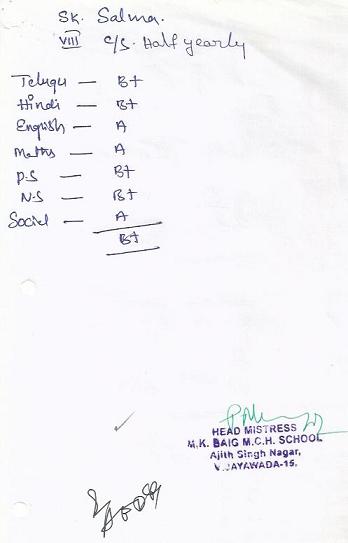 SK. Salma.
VIII C/S. Half yearly
Telugu — B+
Hindi — B+
English — A
Maths — A
P.S — B+
N.S — B+
Social — A
B+
HEAD MISTRESS
M.K. BAIG M.C.H. SCHOOL
Ajith Singh Nagar,
VIJAYAWADA-15.